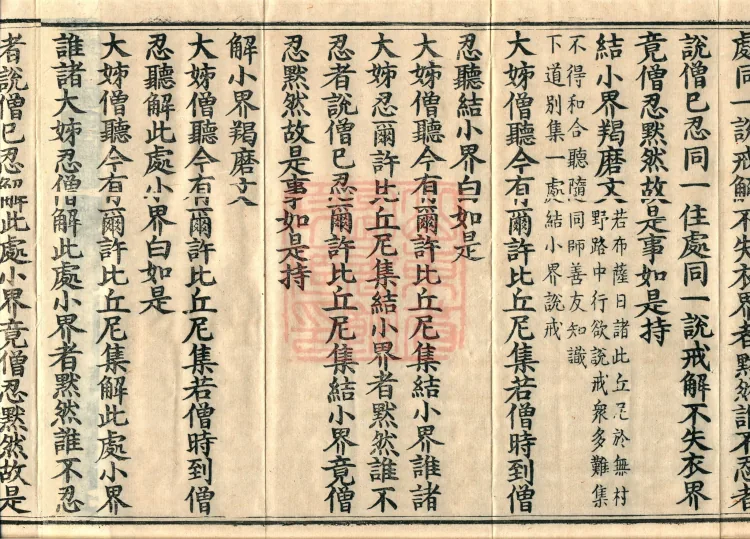 處同一說戒解不失衣界者默然誰不忍者
說僧已忍同一住處同一說戒解不失衣界
竟僧忍默然故是事如是持
結小界羯磨文
若布薩日諸比丘尼於無村
野路中行欲說戒衆多難集
不得和合聽隨同師善友知識
下道別集一處結小界說戒
大姊僧聽今有爾許比丘尼集若僧時到僧
忍聽結小界白如是
大姊僧聽今有爾許比丘尼集結小界誰諸
大姊忍爾許比丘尼集結小界者默然誰不
忍者說僧已忍爾許比丘尼集結小界竟僧
忍默然故是事如是持
解小界羯磨文
大姊僧聽今有爾許比丘尼集若僧時到僧
忍聽解此處小界白如是
大姊僧聽今有爾許比丘尼集解此處小界
誰諸大姊忍僧解此處小界者默然誰不忍
者說僧已忍解此處小界竟僧忍默然故是